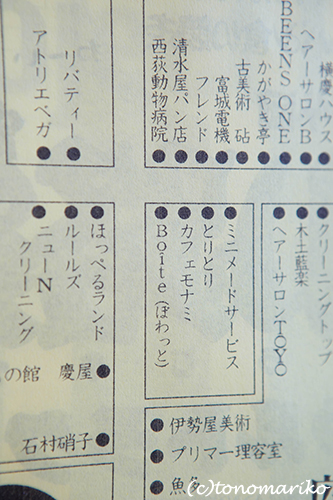 横慶ハウス
ヘアーサロンB
BEENS ONE
かがやき亭
古美術 砧
富城電機
フレンド
清水屋パン店
西荻動物病院
リバティー
アトリエベガ
クリーニングトップ
木土藍楽
ヘアーサロンTOYO
ミニメードサービス
とりとり
カフェモナミ
Boîte(ぽわっと)
ほっぺるランド
ルールズ
ニューN
クリーニング
の館 慶屋
石村硝子
伊勢屋美術
プリマー理容室
(c)tonomariko